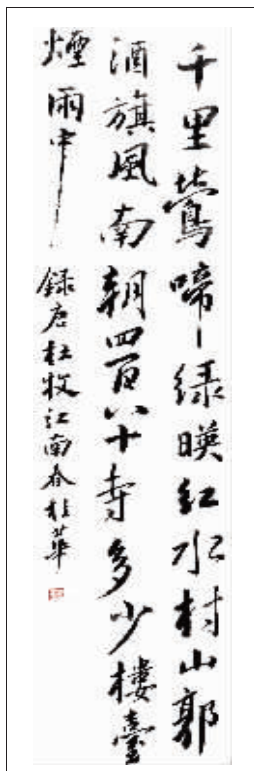 千里鶯啼绿暎红水村山郭
酒旗風南朝四百八十寺多少樓臺
煙雨中
録唐杜牧江南春桂華